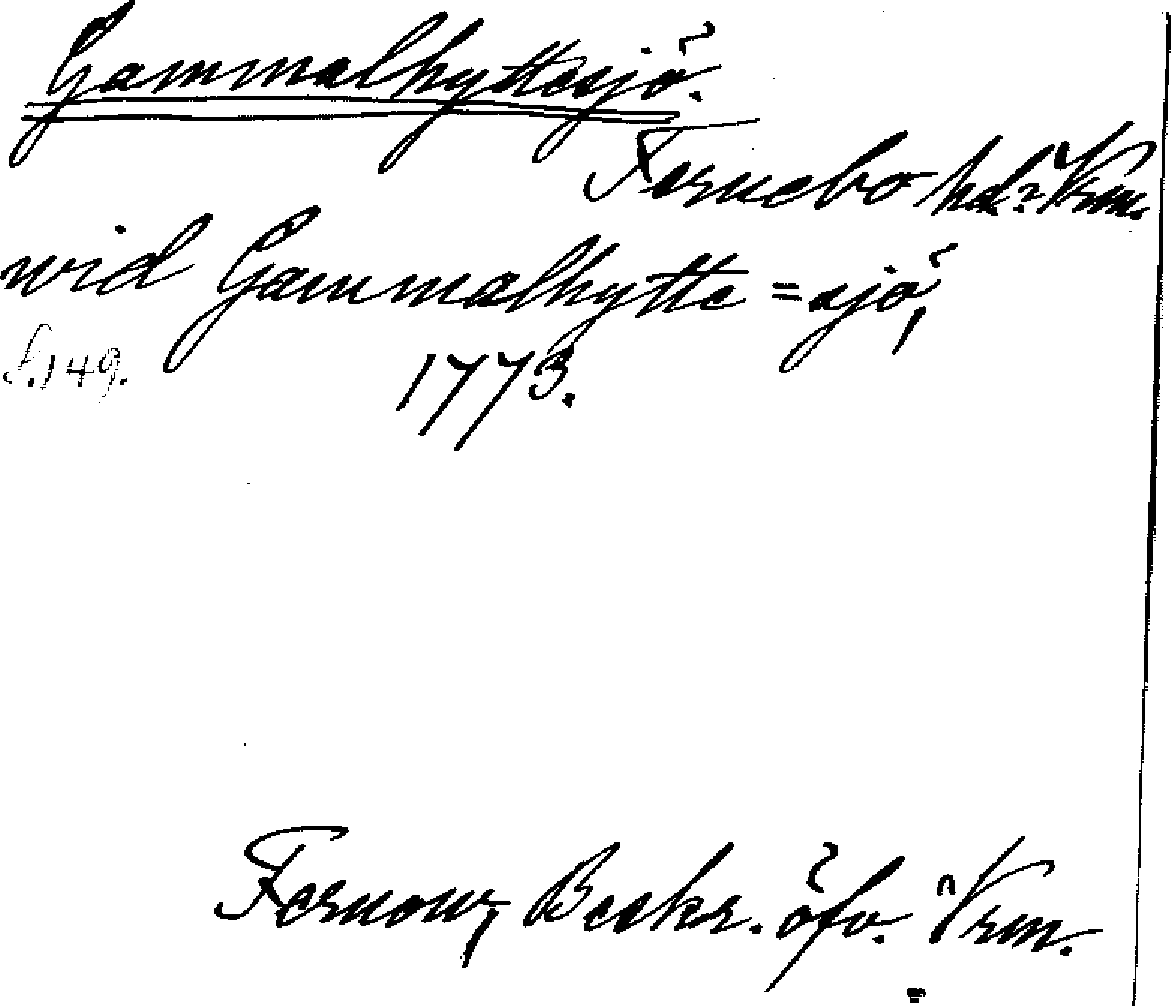 Gammalhyttesjö.
Fernebo hd? Vrm.
wid Gammalhytte=sjö,
s. 149. 1773.
Fernow, Beskr. öfv. Vrm.